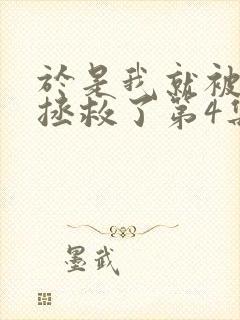 於是我就被
拯救了第4集
墨武